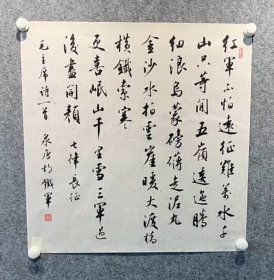 红军不怕远征难万水千
山只等闲五岭逶迤腾
细浪乌蒙磅礴走泥丸
金沙水拍云崖暖大渡桥
横铁索寒
更喜岷山千里雪三军过
后尽开颜
七律长征
毛主席诗一首